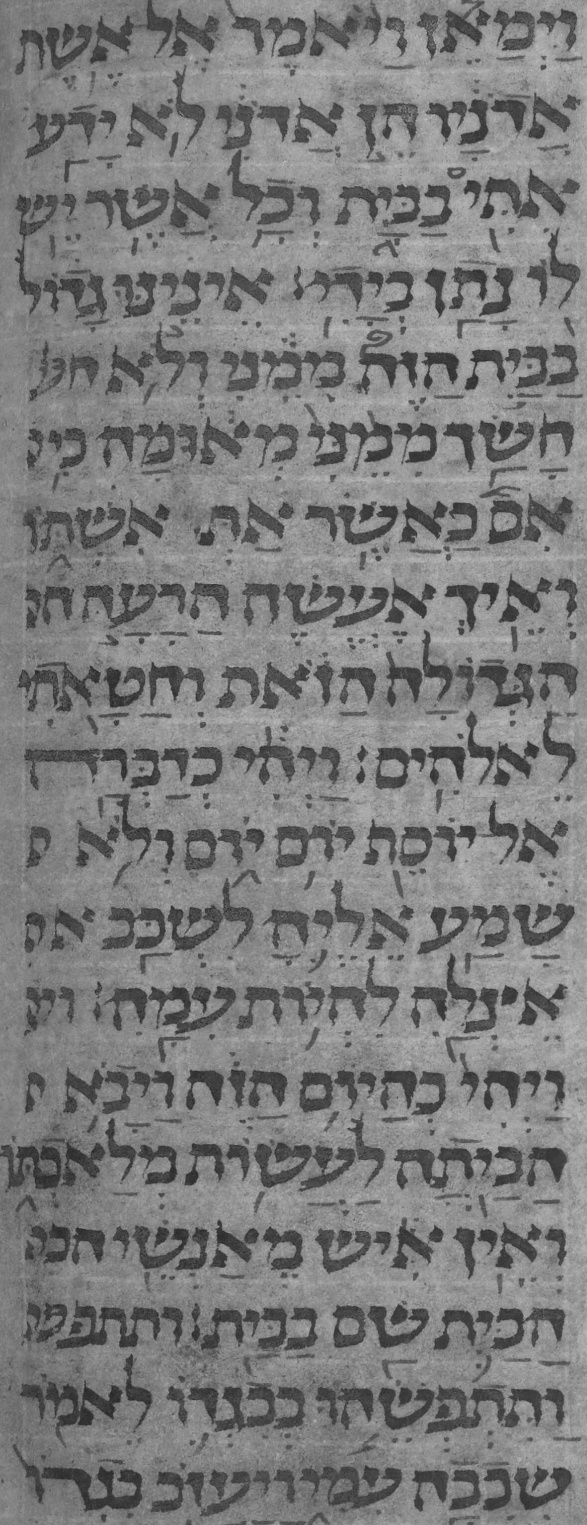 וימאן ויאמר אל אשת
אדניו הן אדני לא ידע
אתי בבית וכל אשר יש
לו נתן בידי׃ איננו גדול
בבית הזה ממני ולא חש
חשך ממני מאומה כי
אם כאשר את אשתו
ואיך אעשה הרעה הג
הגדולה הזאת וחטאתי
לאלהים׃ ויהי כדברה
אל יוסף יום יום ולא
שמע אליה לשכב א
אצלה להיות עמה׃ וי
ויהי כהיום הזה ויבא
הביתה לעשות מלאכתו
ואין איש מאנשי הב
הבית שם בבית׃ ותתפש
ותתפשהו בבגדו לאמר
שכבה עמי ויעזב בגדו